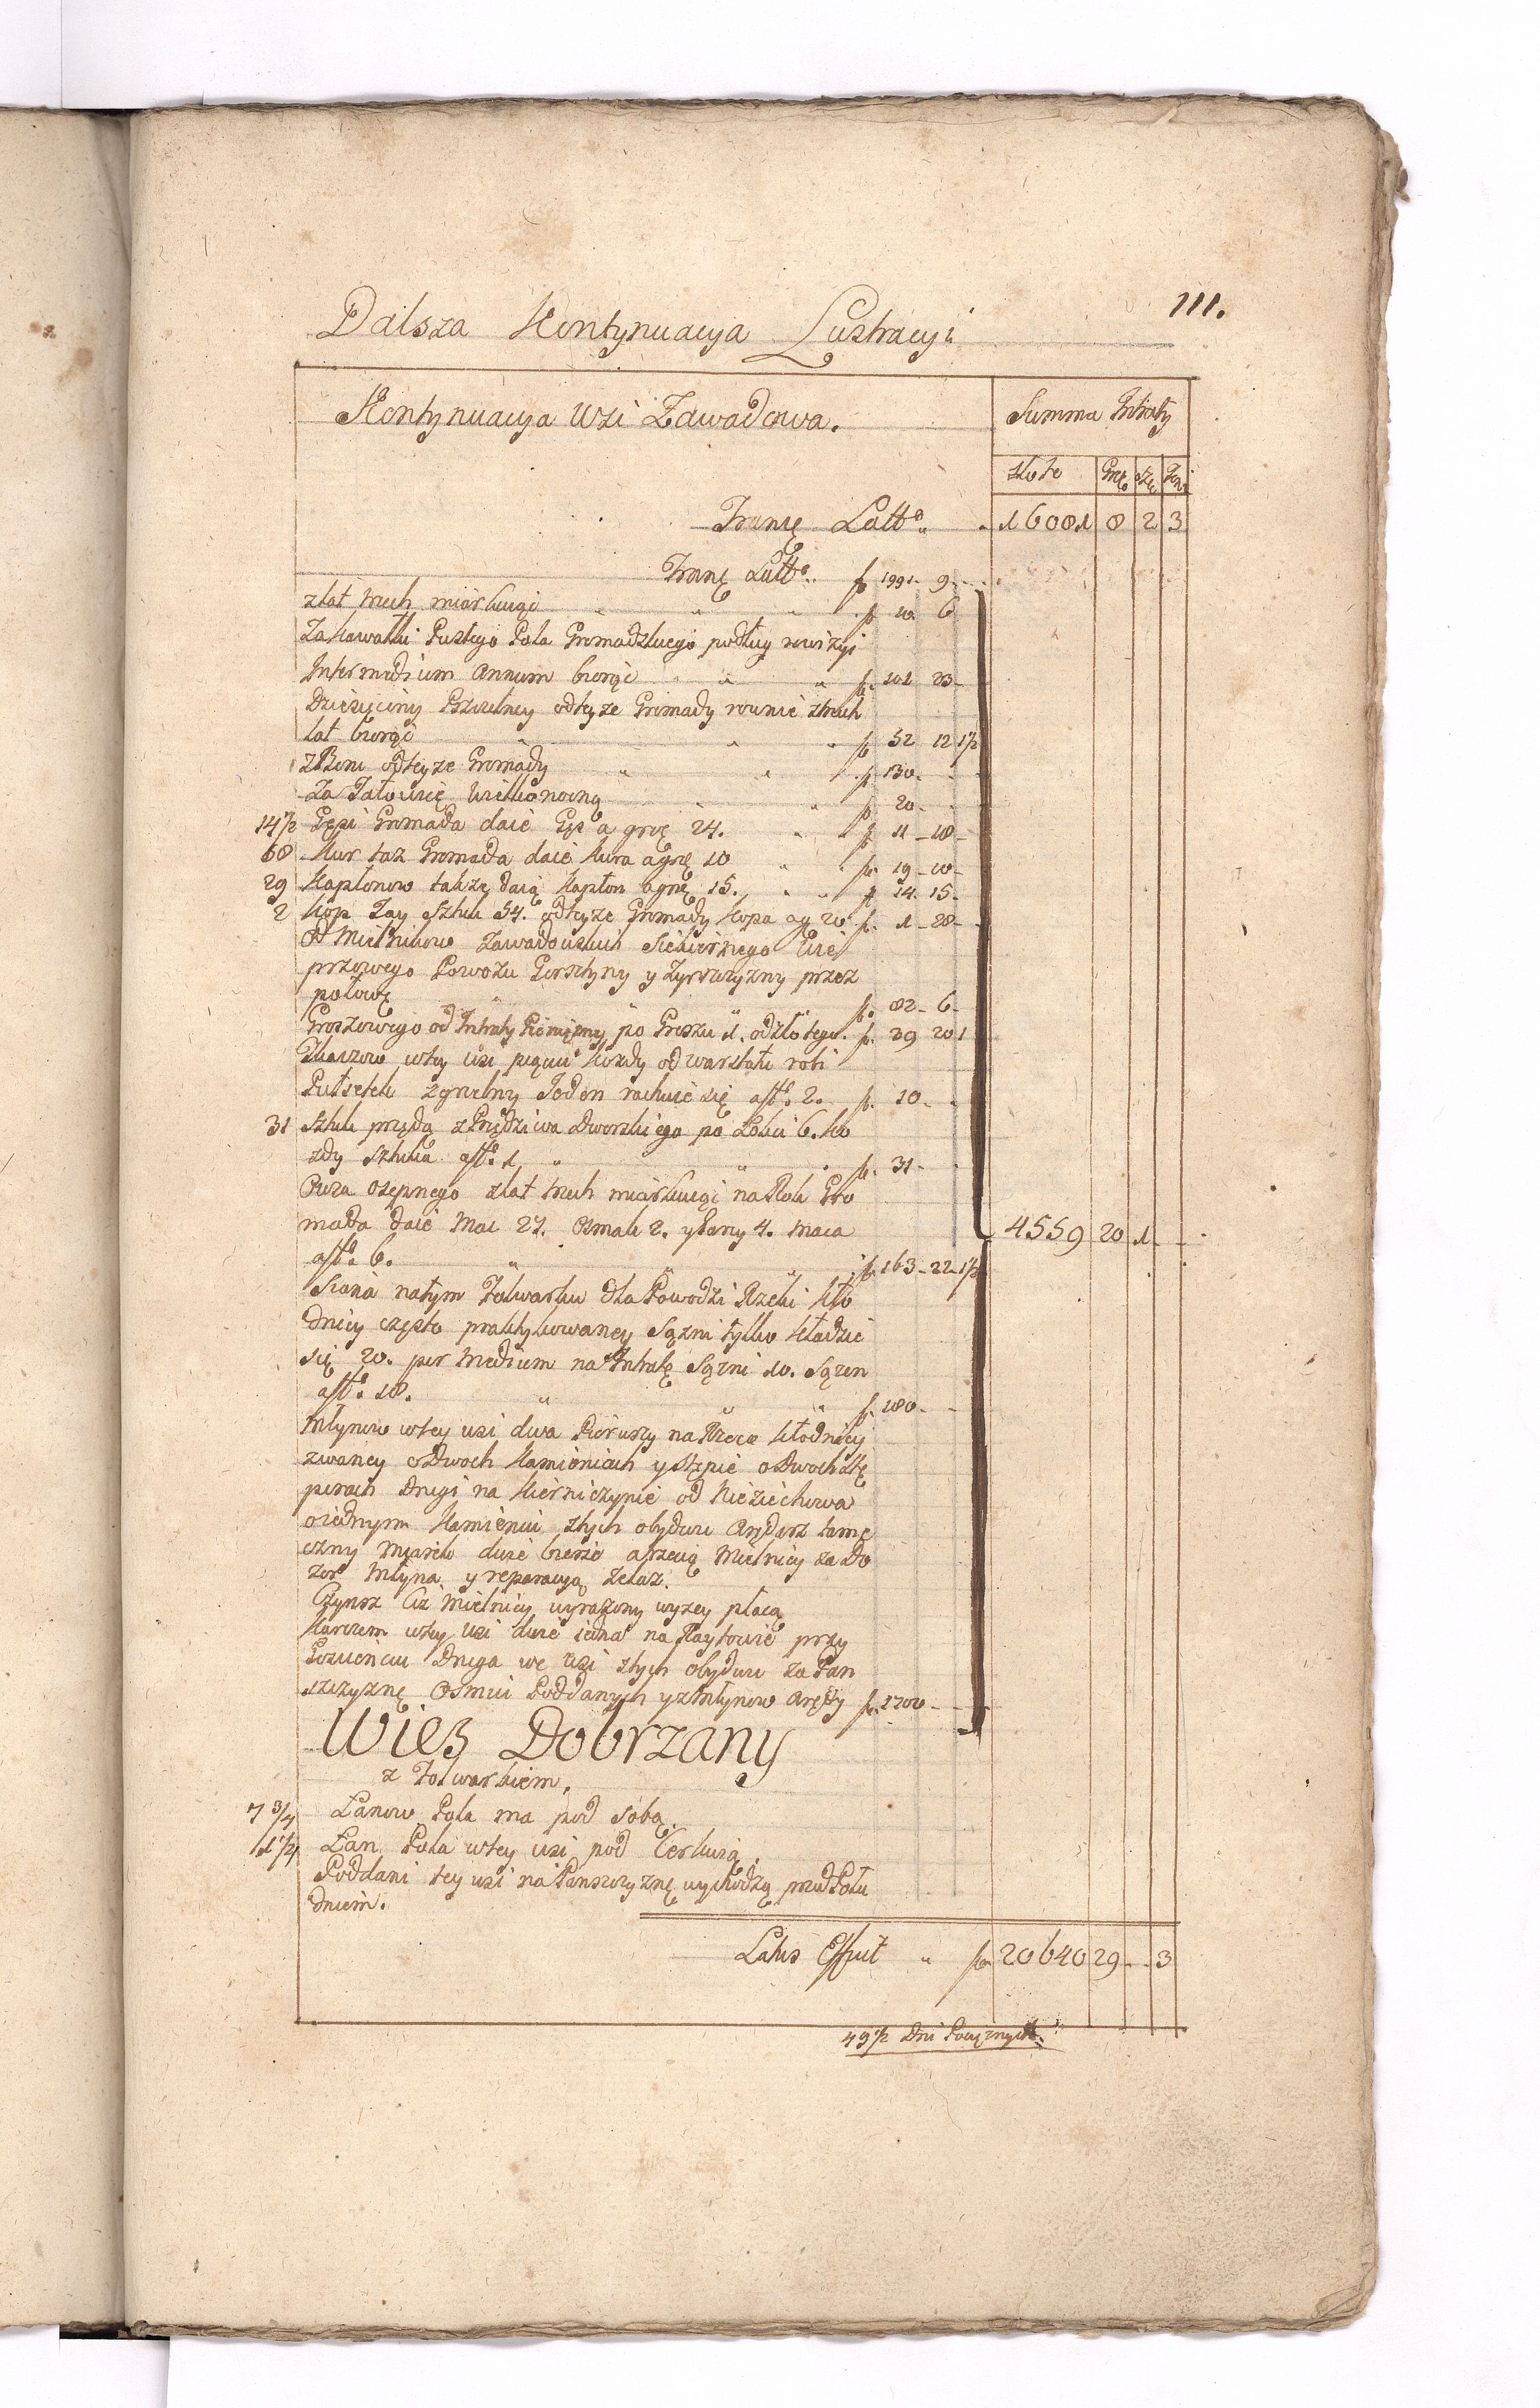 111.
Dalsza Kontynuacya Lustracyi
Kontynuacya Wsi Zawadowa. Summa Intraty
złote Gro Sze Feni
Tranę Latto. 16081 8 2 3
Tranę Latto. f 1991 - 9 -
z lat trzech miarkuąc " " " f 10 6
Za Kawałki Pustego Pola Gromadzkiego podług rewizyi
Intermedium Annum biorąc " " " f. 101 23 -
Dziesięciny Pszczelney od teyze Gromady rownie z trzech
lat biorąc " " " f 52 12 1/2
z Bem od teyze Gromady " " f 130 -
Za Jałowicę Wielkonocną " " f 20 -
14 1/2 Gęsi Gromada daie Gęś a gro 24. " " f 11 - 18 -
68 Kur taz Gromada daie Kura a gro 10 " " f. 19 - 10 -
29 Kapłonow takze daią Kapłon a gro 15. " " f 14. 15 -
2 Kop Jay Sztuk 54. od teyze Gromady Kopa a gr 20 f. 1 - 28 -
Od Mielnikow Zawadowskich Siekiernego Wie
przowego Powozu Gerstyny y
połowę " " " f. 82 - 6 -
Groszowego od Intraty Pieniężney po Groszu 1. od złotego. f. 39 20 1
Tkaczow w tey wsi pięciu kozdy od warstatu robi
Pułsetek zgrzebny Jeden rachuie się a fl. 2. f. 10 -
31 Sztuk przędą z Przędziwa Dworskiego po Łokci 6. ko
zdy sztuka a fl. 1 " " " f. 31 -
Owsa osepnego z lat trzech miarkuąc na Rok Gro
mada daie Mac 27. Osmak 2. y Garny 4. Maca 4559 20 1
a fl. 6. " " f. 163 - 22 - 1/2
Siana na tym Folwarku dla Powodzi Rzeki Kło
dnicy często praktykowaney Sązni tylko kładzie
się 20. per Medium na Intratę Sązni 10. Sązen
a fl. 18. " " " f. 180 -
Młynow w tey wsi dwa Pierwszy na Rzece Kłodnicy
zwaney o Dwoch Kamieniach y Stępie o Dwoch Stę
porach Drugi na Kierniczynie od Nieziechowa
o iednym Kamieniu z tych obydwu Arędarz tame
czny Miarek dwie bierze a trzecią Mielnicy za Do
zor Młyna y reparacyą Zelaz.
Czynsz Ciz Mielnicy wyrazony wyzey płacą
Karczem w tey wsi dwie iedna na Raytowie przy
Gozcieńcu Druga we wsi z tych obydwu za Pan
szczyznę Osmiu Poddanych y z Młynow Arędy f. 1700 -
Wieś Dobrzany
z Folwarkiem.
7 3/4 Łanow Pola ma pod sobą.
1 1/4 Łan Pola w tey wsi pod Cerkwią.
Poddani tey wsi na Panszczyznę wychodzą przed Połu
dniem.
Latus Effuit " f. 20640 29 - 3
49 1/2 Dni